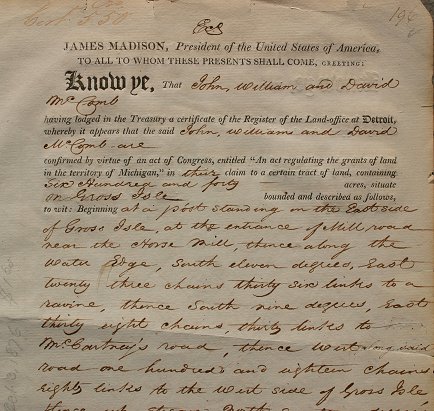 Cert. 550
Ex'd
JAMES MADISON, President of the United States of America,
TO ALL TO WHOM THESE PRESENTS SHALL COME, GREETING:
Know ye, That John, William and David
McComb
having lodged in the Treasury a certificate of the Register of the Land-office at Detroit,
whereby it appears that the said John, William and David
McComb are
confirmed by virtue of an act of Congress, entitled "An act regulating the grants of land
in the territory of Michigan," in their claim to a certain tract of land, containing
Six Hundred and forty acres, situate
on Gross Isle bounded and described as follows,
to wit: Beginning at a post standing on the East side
of Gross Isle, at the entrance of Mill road
near the Horse Mill, thence along the
Water Edge, South eleven degrees, East
twenty three chains thirty six links to a
ravine, thence South nine degrees, East
thirty eight chains, thirty links to
McCartney's road, thence West along said
road one hundred and eighteen chains
eighty links to the West side of Gross Isle